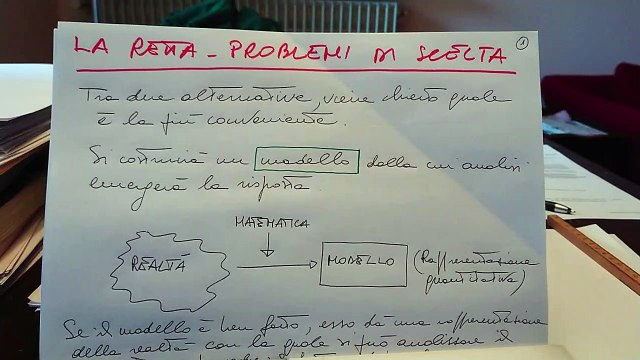 LA RETTA - PROBLEMI DI SCELTA
1
Tra due alternative, viene chiesto quale
è la più conveniente.
Si costruirà un modello dalla cui analisi
emergerà la risposta.
MATEMATICA
REALTÁ
MODELLO
(Rappresentazione
quantitativa)
Se il modello è ben fatto, esso dà una rappresentazione
della realtà con la quale si può analizzare il